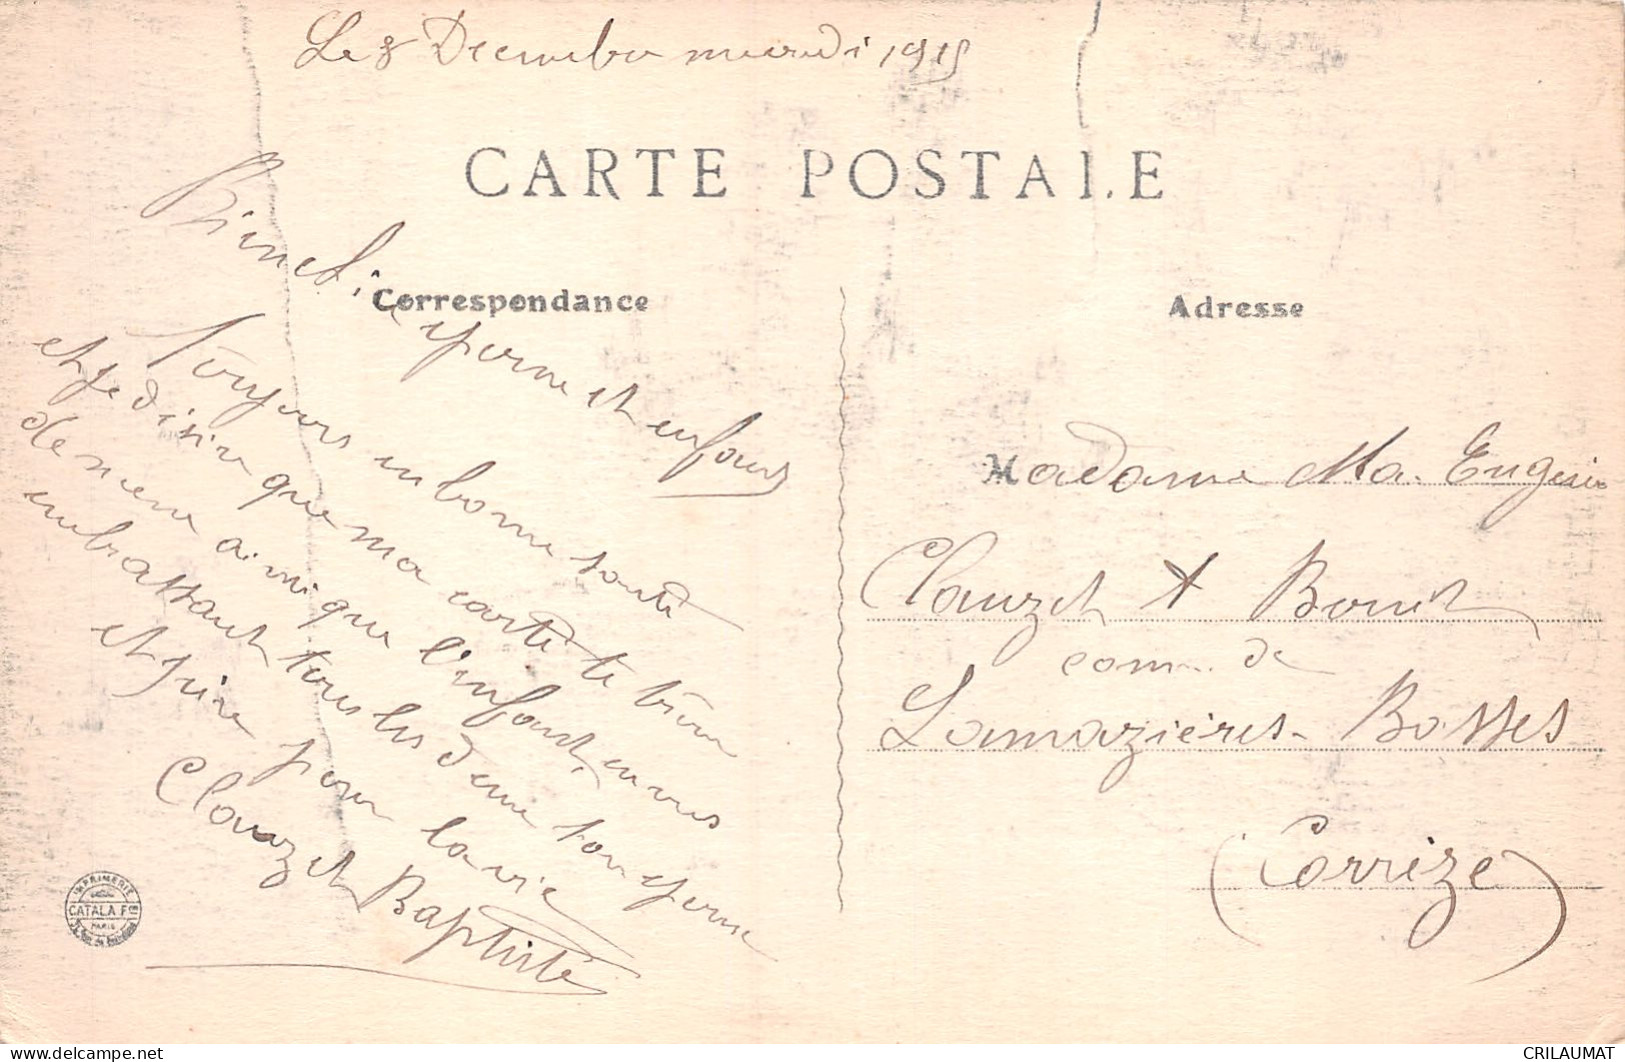 Le 8 Decembre mardi 1915
CARTE POSTALE
Correspondance
Adresse
Bien chère
epouse et enfant
Toujours en bonne santé
et je désire que ma carte te trouve
de meme ainsi que l'enfant, en vous
embrassant tous les deux ton epoux
et père pour la vie
Clauzet Baptiste
Madame Ma. Eugenie
Clauzet
comm. de
Lamazières-Basses
(Corrèze)
IMPRIMERIE
CATALA Fres
PARIS
CRILAUMAT